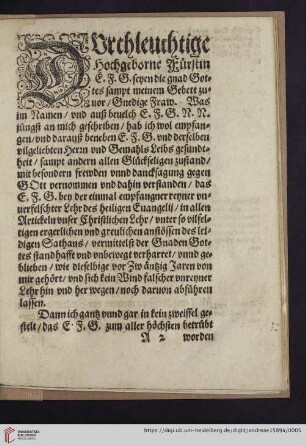 DUrchleuchtige
Hochgeborne Fürstin
E. F. G. seyen die gnad Got-
tes sampt meinem Gebett zu-
uor / Gnedige Fraw. Was
im Namen / vnd auß beuelch E. F. G. N. N.
jüngst an mich geschriben / hab ich wol empfan-
gen / vnd darauß beneben E. F. G. vnd derselben
vilgeliebten Herrn vnd Gemahls Leibs gesundt-
heit / sampt andern allen Glückseligen zustand /
mit besondern frewden vnnd dancksagung gegen
GOtt vernommen vnd dahin verstanden / das
E. F. G. bey der einmal empfangner reyner vn-
uerfelschter Lehr des heiligen Euangelij / in allen
Artickeln vnser Christlichen Lehr / vnter so vilfel-
tigen ergerlichen vnd greulichen anstössen des lei-
digen Sathans / vermittelst der Gnaden Got-
tes standhafft vnd vnbewegt verharret / vnnd ge-
blieben / wie dieselbige vor Zwäntzig Jaren von
mir gehört / vnd sich kein Wind falscher vnreyner
Lehr hin vnd her wegen / noch daruon abführen
lassen.
Dann ich gantz vnnd gar in kein zweiffel ge-
stelt / das E. F. G. zum aller höchsten betrübt
A 2 worden
https://digi.ub.uni-heidelberg.de/diglit/andreae1589a/0005